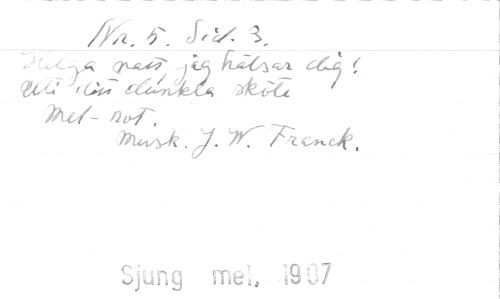 Nr. 5. Sid. 3.
Helga natt, jag hälsar dig!
Uti ditt dunkla sköte
Mel-not.
Musk. J. W. Franck.
Sjung mel, 1907